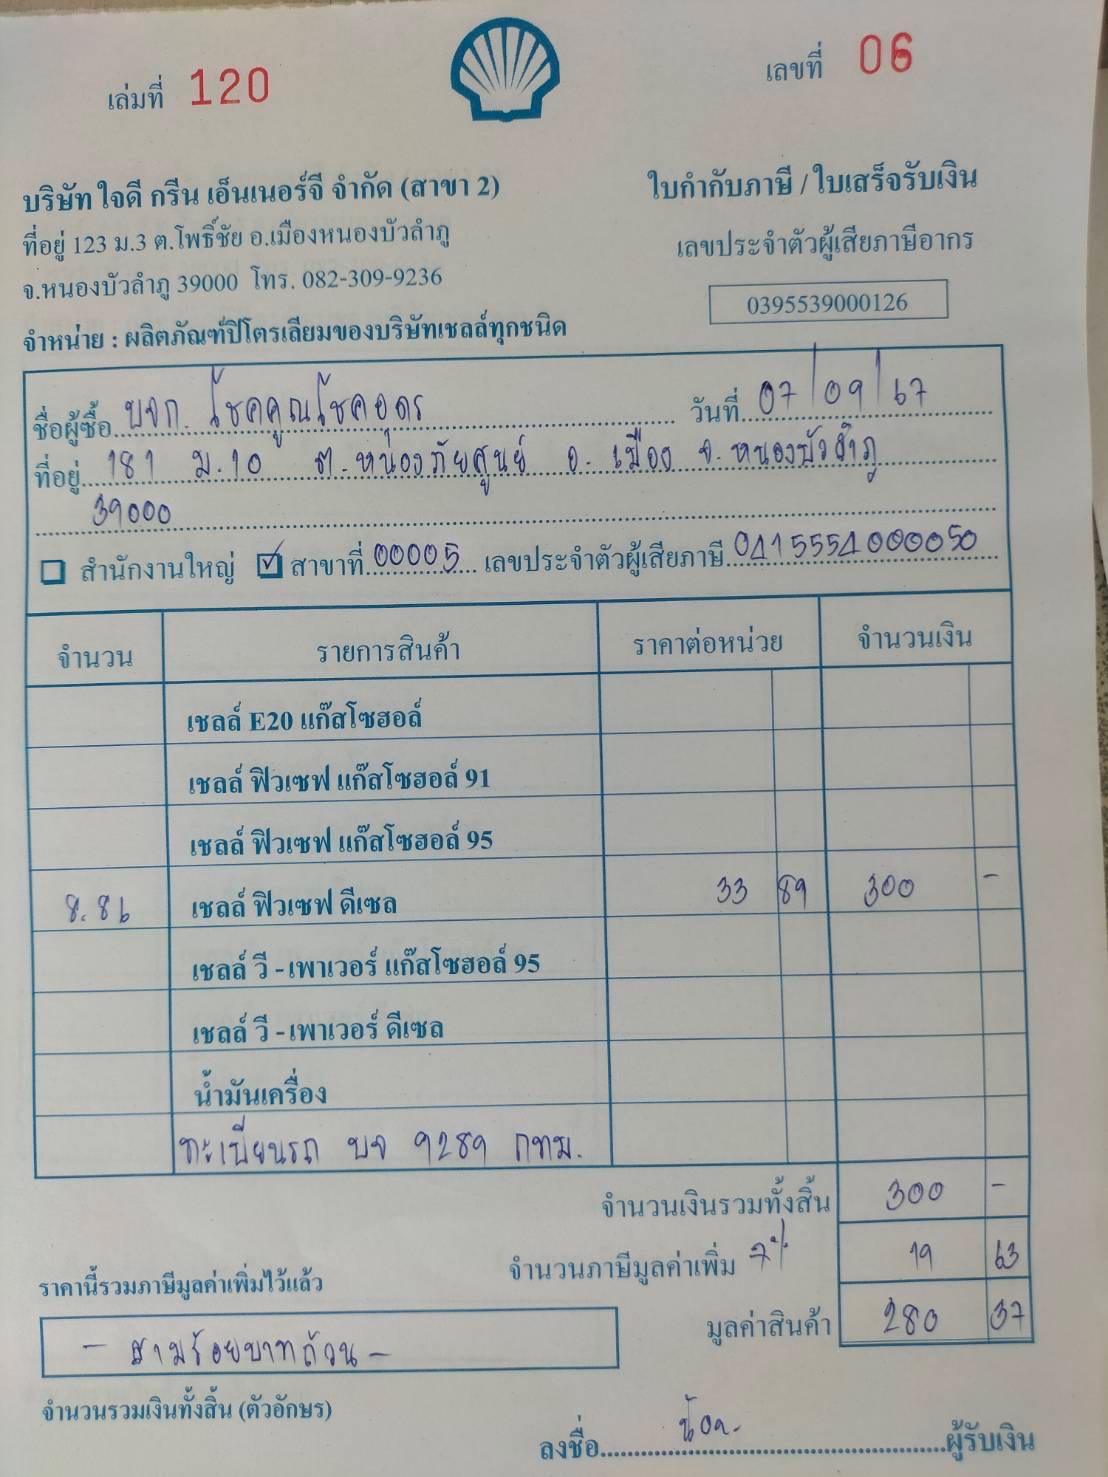 เล่มที่ 120
เลขที่ 06
บริษัท ใจดี กรีน เอ็นเนอร์จี จำกัด (สาขา 2)
ใบกำกับภาษี / ใบเสร็จรับเงิน
ที่อยู่ 123 ม.3 ต.โพธิ์ชัย อ.เมืองหนองบัวลำภู
เลขประจำตัวผู้เสียภาษีอากร
จ.หนองบัวลำภู 39000 โทร. 082-309-9236
0395539000126
จำหน่าย : ผลิตภัณฑ์ปิโตรเลียมของบริษัทเชลล์ทุกชนิด
ชื่อผู้ซื้อ บจก. โชคคูณโชคอุดร วันที่ 07/09/67
ที่อยู่ 181 ม.10 ต.หนองภัยศูนย์ อ.เมือง จ.หนองบัวลำภู
39000
สำนักงานใหญ่ ☑ สาขาที่ 00005 เลขประจำตัวผู้เสียภาษี 0415554000050
จำนวน รายการสินค้า ราคาต่อหน่วย จำนวนเงิน
เชลล์ E20 แก๊สโซฮอล์
เชลล์ ฟิวเซฟ แก๊สโซฮอล์ 91
เชลล์ ฟิวเซฟ แก๊สโซฮอล์ 95
8.86 เชลล์ ฟิวเซฟ ดีเซล 33 89 300 -
เชลล์ วี - เพาเวอร์ แก๊สโซฮอล์ 95
เชลล์ วี - เพาเวอร์ ดีเซล
น้ำมันเครื่อง
ทะเบียนรถ บจ 9289 กทม.
จำนวนเงินรวมทั้งสิ้น 300 -
จำนวนภาษีมูลค่าเพิ่ม 7% 19 63
ราคานี้รวมภาษีมูลค่าเพิ่มไว้แล้ว
มูลค่าสินค้า 280 37
- สามร้อยบาทถ้วน -
จำนวนรวมเงินทั้งสิ้น (ตัวอักษร)
ลงชื่อ ผู้รับเงิน